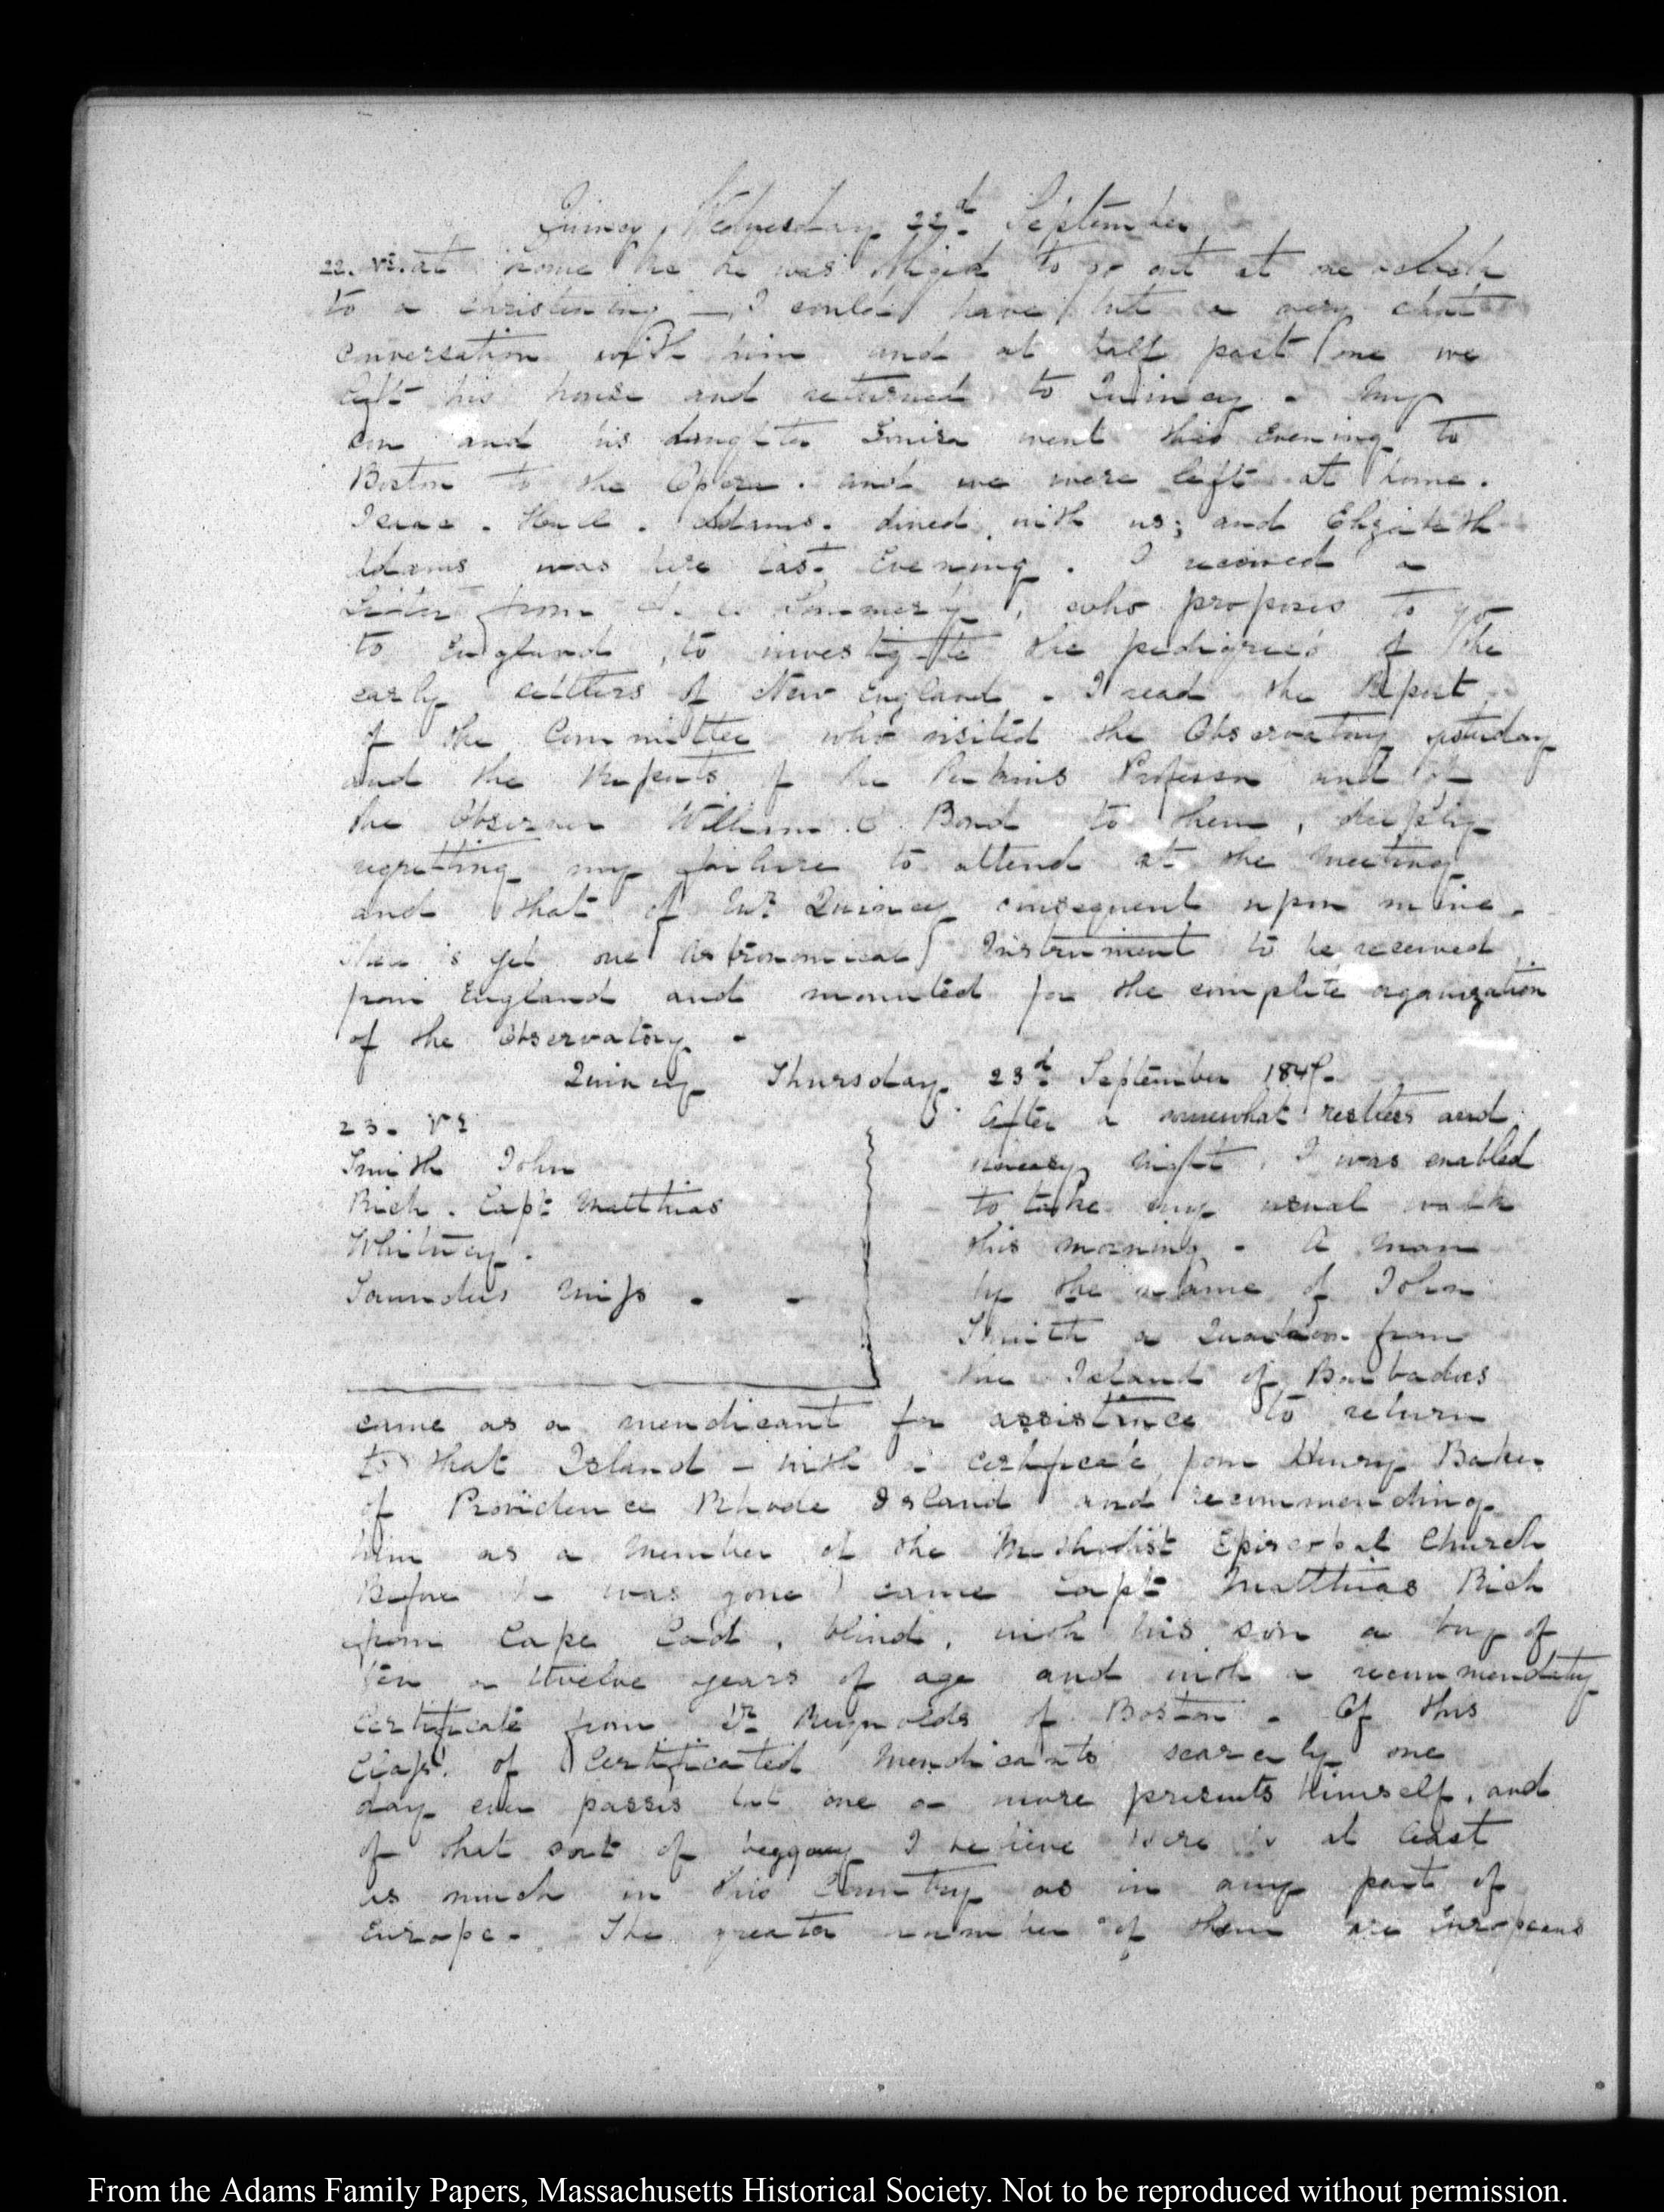 Quincy Wednesday 22d. September
22. VI. at home he was obliged to go out at one o'clock
to a christening — I could have but a very short
conversation with him and at half past one we
left his house and returned to Quincy - My
son and his daughter Louisa went this Evening to
Boston to the Opera. and we were left at home.
Isaac. Hull. Adams. dined with us; and Elizabeth
Adams was here last Evening. I received a
Letter from, who proposes to go
to England, to investigate the pedigrees of the
early settlers of New England - I read the Report
of the Committee who visited the Observatory yesterday
and the Reports of the Perkins Professor and of
the Observer William. C. Bond to them, deeply
regretting my failure to attend at the meeting
and that of Mr. Quincy consequent upon mine -
There is yet one Astronomical Instrument to be received
from England and mounted for the complete organization
of the Observatory -
Quincy Thursday 23d. September 1847-
23. VI
Smith John
Rich. Capt. Matthias
Whitney.
Saunders Miss - -
After a somewhat restless and
uneasy night, I was enabled
to take my usual walk
this morning - A man
by the name of John
Smith a Quadroon from
the Island of Barbadoes
came as a mendicant for assistance to return
to that Island - with a certificate from Henry Baker
of Providence Rhode Island and recommending
him as a Member of the Methodist Episcopal Church
Before he was gone came Capt. Matthias Rich
from Cape Cod, blind, with his son a boy of
ten or twelve years of age and with a recommendatory
Certificate from Dr. Reynolds of Boston - Of this
Class of Certificated Mendicants scarcely one
day ever passes but one or more presents himself, and
of that sort of beggary I believe there is at least
as much in this Country as in any part of
Europe - The greater number of them are Europeans
From the Adams Family Papers, Massachusetts Historical Society. Not to be reproduced without permission.